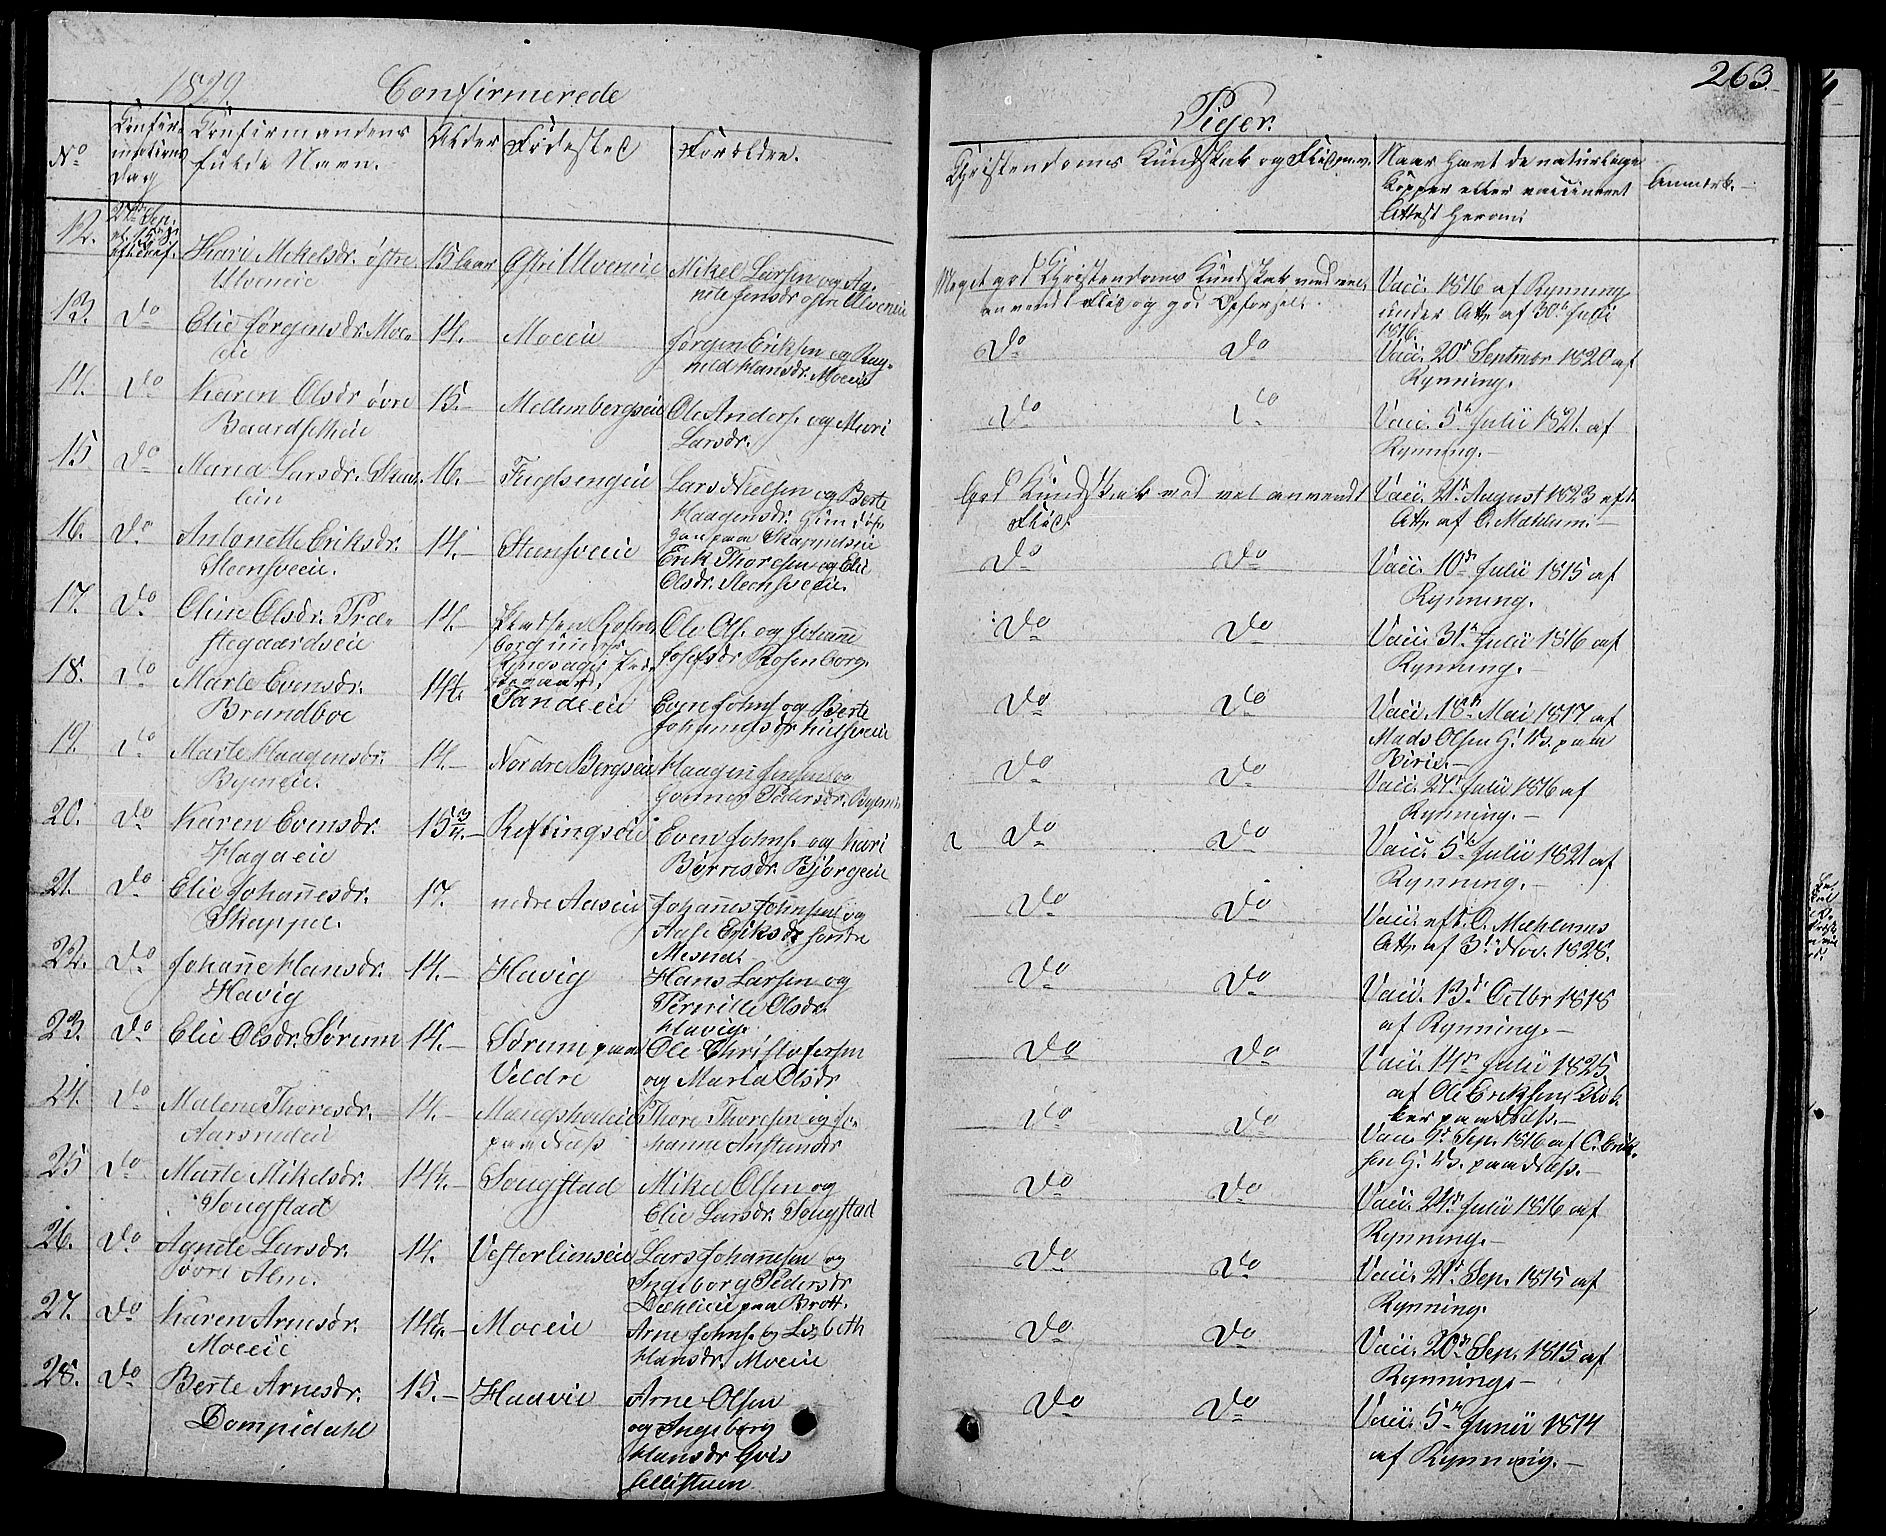 1829. Confirmerede
Piger. 263
No
Confirmations Dag
Confirmandens fulde Navn.
Alder
Fødested
Forældre.
Christendoms Kundskab og Flid m. v.
Naar havt de naturlige Kopper eller vaccineret Attest herom.
Anmærk.
12.
Kari Mikelsdr. østre Ulveneie
15 Aar
Østre Ulveneie
Mikel Larsen og Agnete Jensdr østre Ulveneie
Meget god Christendoms Kundskab med vel anvendt Flid og god Opførsel.
Vacc. 1816 af Rynning under Att. af 30te Julii 1816
13. Do
Elie Jørgensdr. Moeeie
14.
Moeeie
Jørgen Eriksen og Ragnild Hansdr. Moeeie
Do Do
Vacc. 20d Septmbr 1820 af Rynning.
14. Do
Karen Olsdr øvre Baardsetheie
15.
Mellembergseie
Ole Anders. og Mari Larsdr.
Do Do
Vacc. 5te Julii 1821. af Rynning.
15 Do
Maria Larsdr.
16.
Fuglsengeie
Lars Nielsen og Berte Haagensdr.
God Kundskab med vel anvendt Flid.
Vacc. 21d August 1823 eft. Att. af O. Mæhlum.
16. Do
Antonette Eriksdr. Steensveeie.
14.
Steensveeie
Erik Thoresen og Eli Olsdr. Steensveeie.
Do Do
Vacc. 10de Julii 1815 af Rynning.
17. Do
Oline Olsdr. Præstegaardseie
14.
Pladsen Rosenborg under Ringsager Præstegaard.
Ole Ols. og Johanne Josefsdr Rosenborg.
Do Do
Vacc. 31d Julii 1816 af Rynning.
18. Do
Marte Evensdr. Brandboe
14½.
Tandeeie
Even Johns. og Berte
Do Do
Vacc. 18de Mai 1817 af Mads Olsen G. Vs. paa Birie.
19. Do
Marte Haagensdr. Bymeie.
14.
Nordre Bergseie
Haagen Jensen og Gunner Pedersdr.
Do Do
Vacc. 24d Julii 1816 af Rynning.
20. Do
Karen Evensdr. Hagaeie
15¾.
Kiflingseie
Even Johns. og Kari Børresdr. Bjørgeeie
Do Do
Vacc. 5te Julii 1821 af Rynning.
21. Do
Elie Johannesdr. Skappel.
17.
nedre Aaseie
Johannes Johnsen og Aase Eriksdr søndre Mesna.
Do Do
Vacc. eft. O. Mæhlums Att. af 3d Nov. 1828.
22. Do
Johanne Hansdr. Havig
14.
Havig
Hans Larsen og Pernille Olsdr. Havig.
Do Do
Vacc. 13d Octbr 1818 af Rynning.
23. Do
Elie Olsdr. Sørum
14.
Sørum paa Veldre
Ole Christofersen og Marta Olsdr
Do Do
Vacc. 14d Julii 1825 af Ole Eriksen Klokker paa Næss.
24. Do
Malene Thoresdr. Aarsrudeie
14.
paa Næss
Thore Thoresen og Johanne
Do Do
Vacc. 9d Sep. 1816 af O. Eriksen G. Vs. paa Næss.
25 Do
Marte Mikelsdr. Songstad
14½.
Songstad
Mikel Olsen og Elie Larsdr. Songstad
Do Do
Vacc. 24d Julii 1816 af Rynning.
26. Do
Agnete Larsdr. øvre Alm.
14.
Vesterlienseie
Lars Johannesen og Ingeborg Pedersdr Dæhlieie paa Brott.
Do Do
Vacc. 21d Sep. 1815 af Rynning.
27. Do
Karen Arnesdr. Moeeie
14½.
Moeeie
Arne Johns. og Lisbeth Hansdr. Moeeie
Do Do
Vacc. 20d Sep. 1815 af Rynning.
28. Do
Berte Arnesdr. Dompidahl
15.
Haavie
Arne Olsen og Ingeborg Hansdr
Do Do
Vacc. 5te Junii 1814 af Rynning.